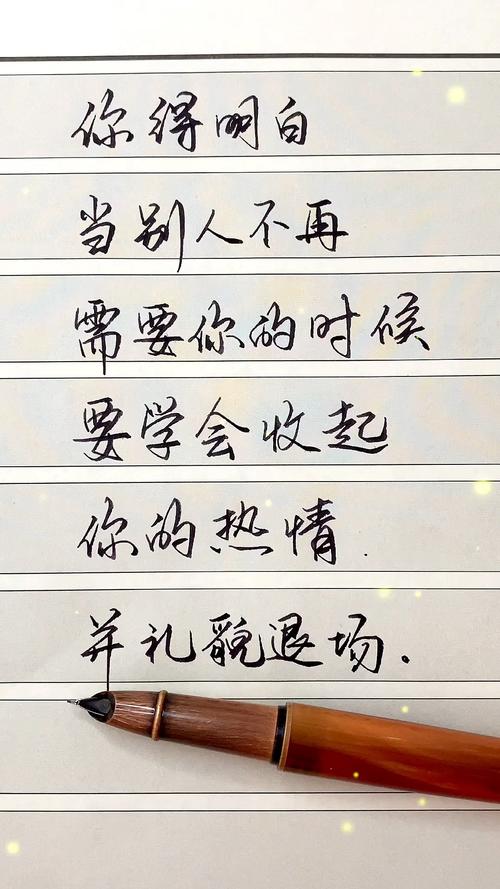 你得明白
当别人不再
需要你的时候
要学会收起
你的热情.
并礼貌退场.